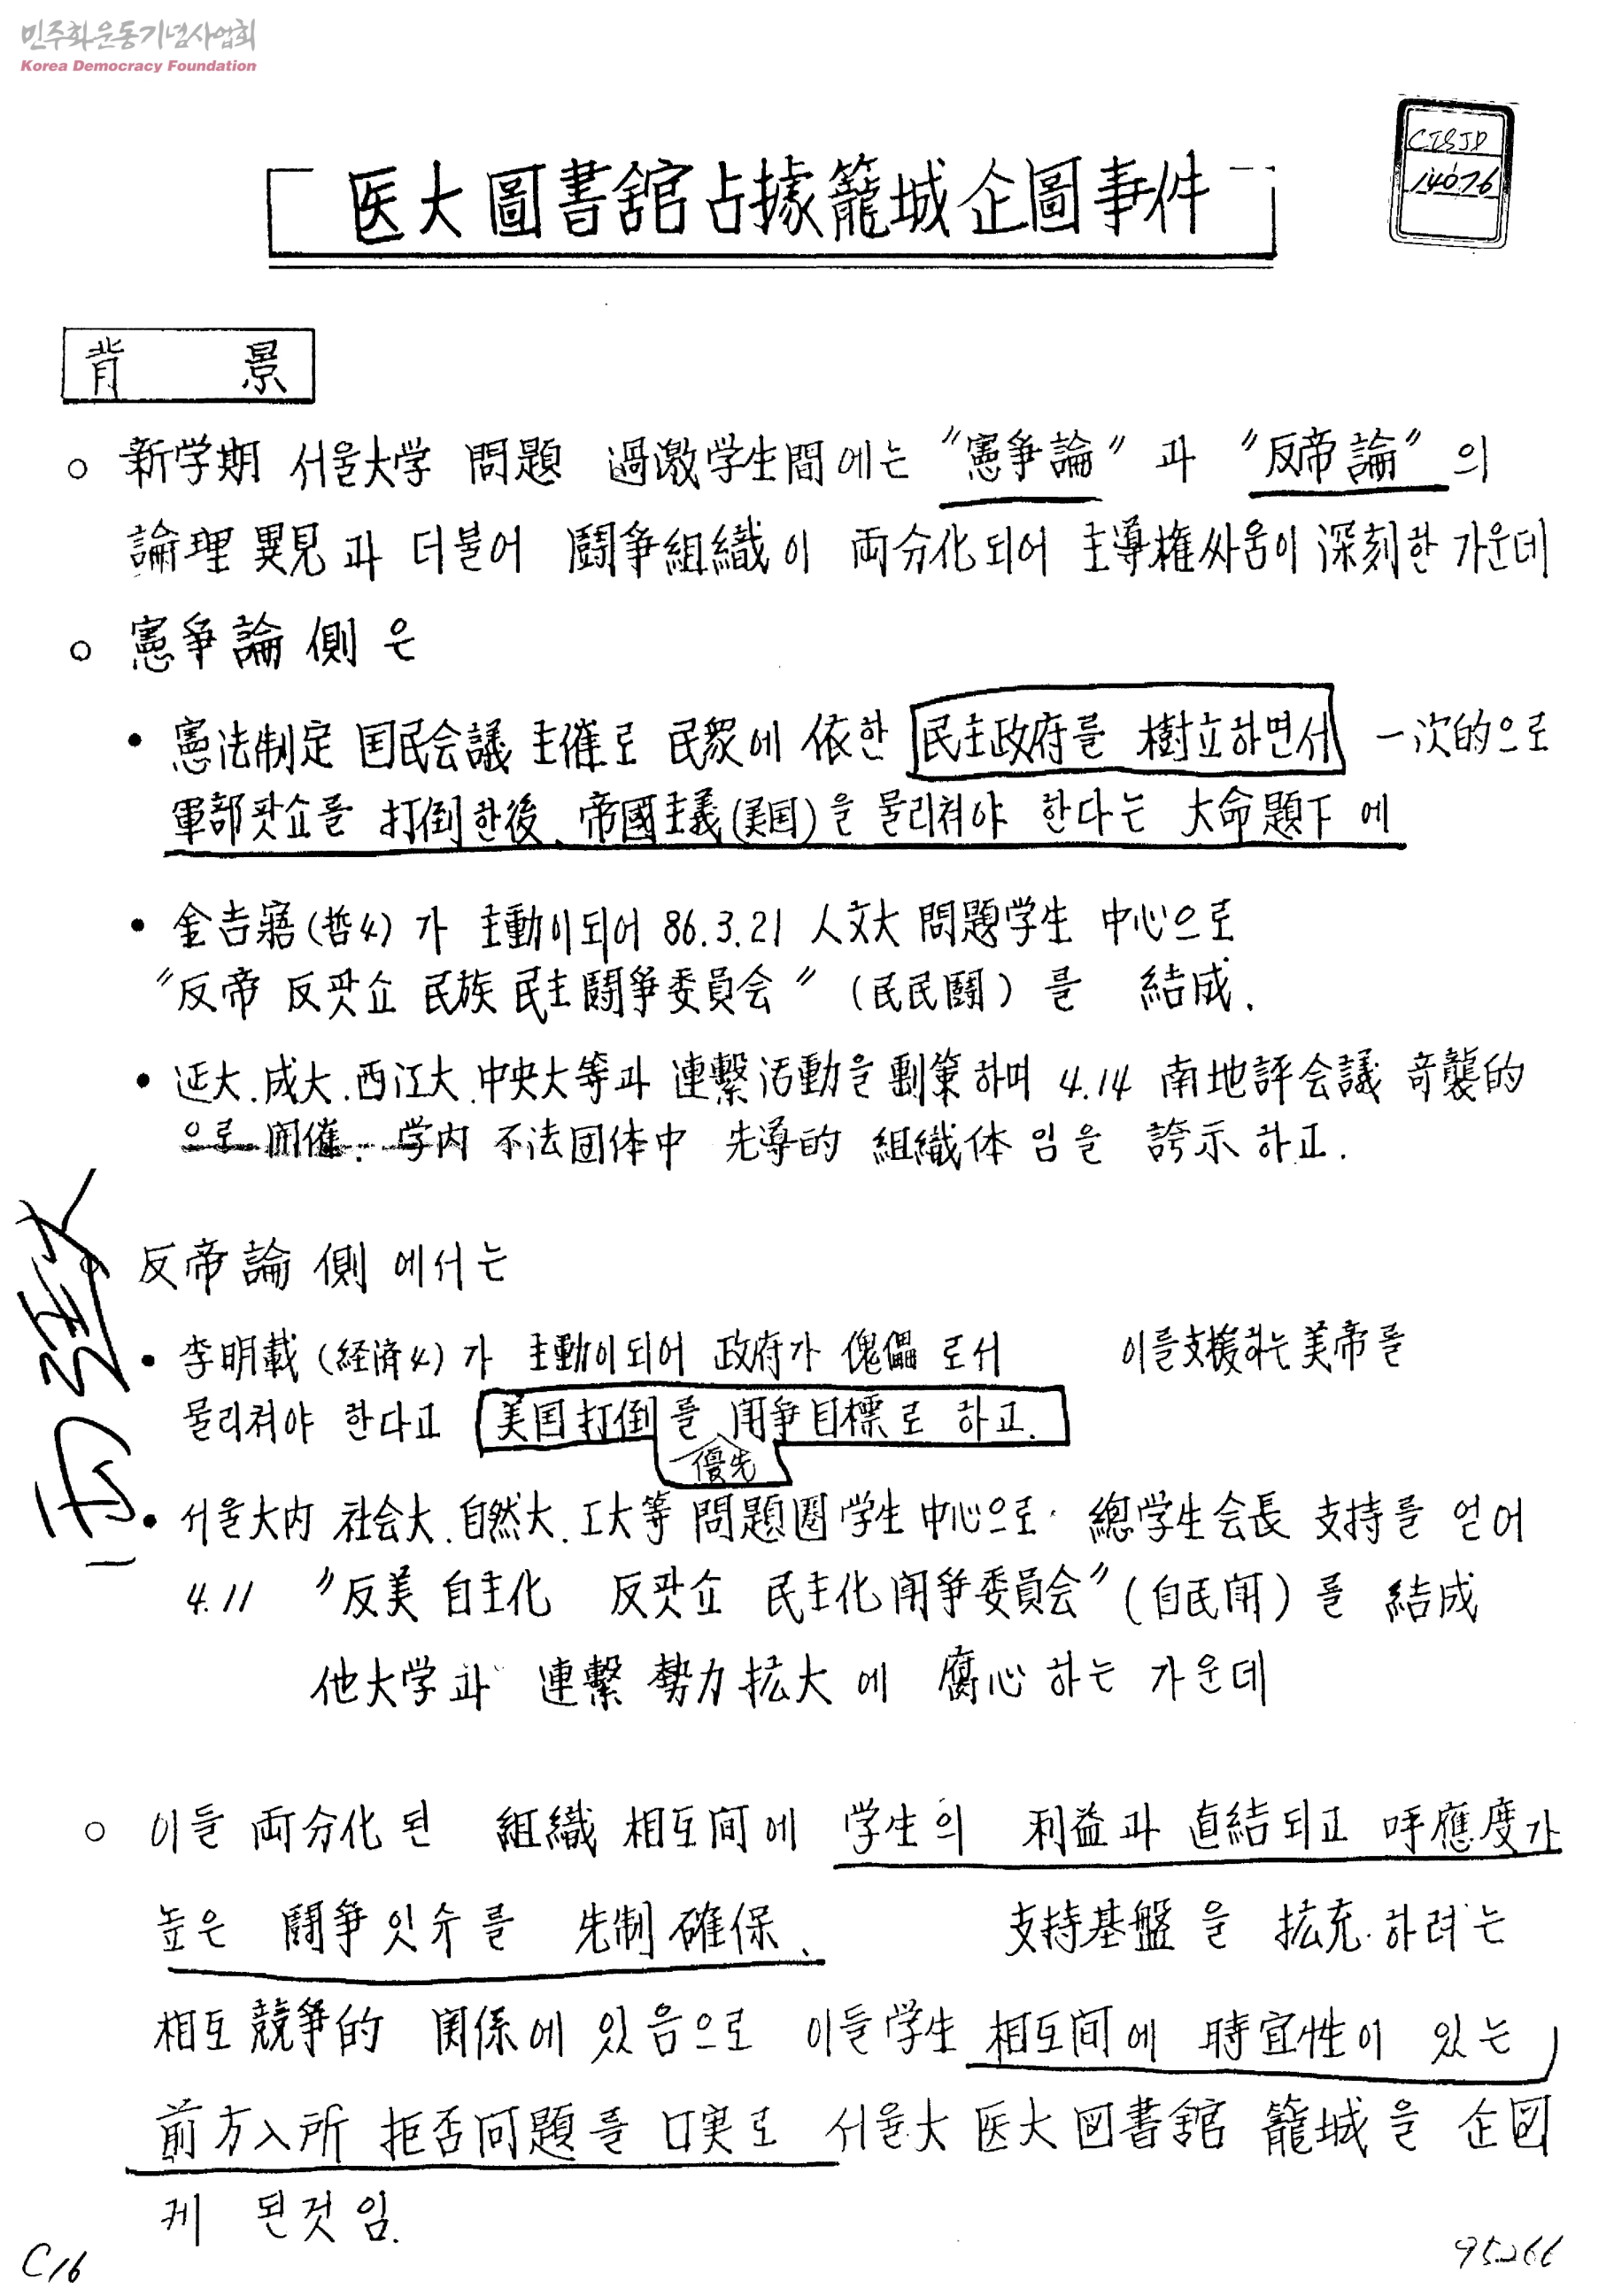 민주화운동기념사업회
Korea Democracy Foundation
CISJD
14076
医大圖書館占據籠城企圖事件
背 景
○ 新学期 서울大学 問題 過激学生間에는 〃憲爭論〃 과 〃反帝論〃 의
論理 異見 과 더불어 鬪爭組織이 両分化되어 主導權싸움이 深刻한 가운데
○ 憲爭論 側 은
• 憲法制定 国民会議 主催로 民衆에 依한 民主政府를 樹立하면서 一次的으로
軍部팟쇼를 打倒한後、帝國主義(美国)을 물리쳐야 한다는 大命題下에
• 金吉寤(哲4)가 主動이되어 86.3.21 人文大 問題学生 中心으로
〃反帝 反팟쇼 民族 民主鬪爭委員会〃 (民民鬪) 를 結成.
• 延大.成大.西江大.中央大等과 連繫活動을 劃策하며 4.14 南地評会議 奇襲的
으로 開催. 学内 不法団体中 先導的 組織体 임을 誇示 하고.
反帝論 側 에서는
• 李明載 (経済4) 가 主動이되어 政府가 傀儡 로서 이를支援하는 美帝를
물리쳐야 한다고 美国打倒를 鬪爭目標로 하고.
優先
• 서울大内 社会大.自然大.工大等 問題圈学生 中心으로 總学生会長 支持를 얻어
4.11 〃反美 自主化 反팟쇼 民主化鬪爭委員会〃(自民鬪)를 結成
他大学과 連繫 勢力拡大에 腐心하는 가운데
○ 이들 両分化된 組織 相互間에 学生의 利益과 直結되고 呼應度가
높은 鬪爭잇슈를 先制確保、 支持基盤을 拡充하려는
相互競爭的 関係에 있음으로 이들学生 相互間에 時宜性이 있는
前方入所 拒否问題를 口実로 서울大医大図書館 籠城을 企図
케 된것임.
C16
95266